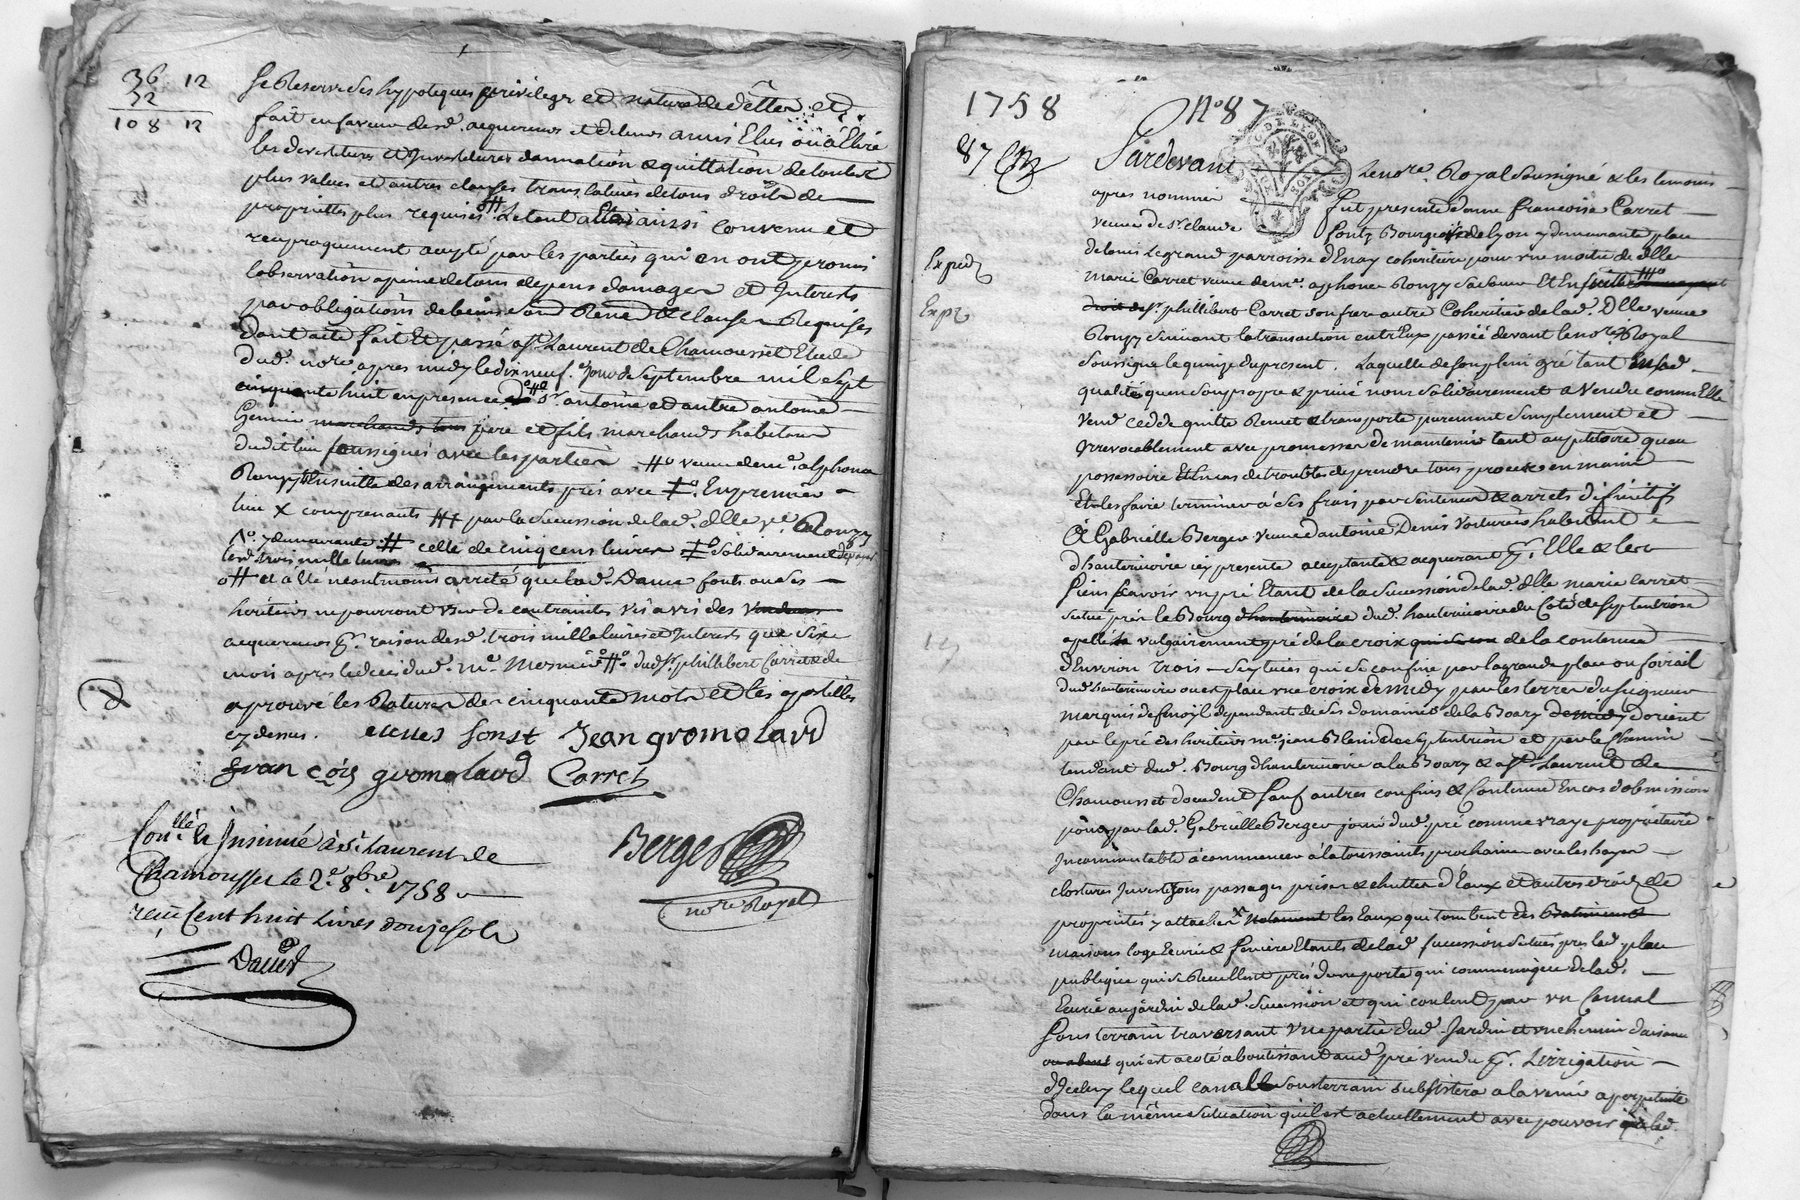 36 12
32
108 12
Se Reserve ses hypoteques privilege et nature de dêtte et
fait en faveur desd. acquereurs et deleurs amis Elus ou á Elire
les devetitures et Investitures dannation & quittation de toutes
plus values et autres clauses translatives detous droits de
proprietés plus requises Letout ainsi convenu et
reciproquement accepté par les parties qui en ont promis
lobservation apeine detous depens damages et Interests
par obligations de biens and Renon & clauses Requises
dont acte fait Et passé a St Laurent de Chamousset Etude
dud. nore. apres midy le dix neuf.e jour de Septembre mil sept
cinquante huit en presence de Sr. antoine et autre antoine
marchands pere et fils marchands habitans
dudit lieu soussignés avec les parties. veuve de me. alphonce
Ronzy Ensuitte des arrangements pris avec En premier
lieu X comprenants par la Sucession de lad. dlle ve. Ronzy
y demeurante celle de cinq cens livres solidairement
lesd. trois mille livres
et a été neantmoins arreté que lad. Dame fonts ou ses
heritiers ne pourront user de contraintes vis a vis des vendeurs
acquereurs pr. raison desd. trois mille livres et Interests que six
mois apres le deces dud. me. dud. Sr. phillibert Carret de
aprouvé les Ratures de cinquante mots et les apostilles
cy dessus. Jean gromolard
fran çois gromolard Carret
Con.llé & Insinué à St. Laurent de
Chamousset le 2.e 8bre. 1758
recu Cent huit livres douze sols
Berger
nore Royal
David
1758 No 87
87
Expedié
Expé
Pardevant Lenore. Royal Soussigné & les temoins
apres nommés fut presente dame francoise Carret
veuve de Sr. claude fonts Bourgeois de Lyon y demeurante place
de louis Legrand parroisse d'Enay coheritiere pour une moitié de dlle
marie Carret veuve de me. alphonce Ronzy sa soeur Et En
droit de Sr. phillibert Carret son frere autre Coheritier de lad. Dlle veuve
Ronzy Suivant la transaction entr'Eux passée devant le nore. Royal
Soussigné le quinze du present. Laquelle de son plein gré tant En lad.
qualité quen son propre & privé nom solidairement a Vendu comm'Elle
Vend cedde quitte Remet & transporte purement Simplement et
Irrevocablement avec promesse de maintenir tant au petitoire quau
possessoire Et En cas de troubles de prendre tous proces en main
Et les faire terminer à ses frais par Sentences & arrets difinitifs
A Gabrielle Berger veuve d'antoine Denis Voiturier habitante
d'hauterivoire icy presente acceptante & acquerant pr. Elle & les
siens sçavoir un pré Etant de la Sucession de lad. dlle marie Carret
situé près le Bourg d'hauterivoire dud. hauterivoire du Coté de Septentrion
apellé vulgairement pré de la croix de la contenue
d'Environ trois qui se confine par la grande place ou foirail
dud. hauterivoire ou est placée une croix de midy par les terres du Seigneur
marquis de fenoÿl dependant de ses domaines de la Boary de midy d'orient
par le pré des heritiers me. jean de septentrion et par le Chemin
tendant dud. Bourg d'hauterivoire a la Boary & a St. Laurent de
Chamousset d'occident sauf autres confins & Contenue En cas d'obmission
pour par lad. Gabrielle Berger jouir dud. pré comme vraye proprietaire
Incommutable à commencer à la toussaints prochaine avec les hayes
clostures Investizons passages prises & chuttes d'Eaux et autres droits de
proprietés y attachés notament les Eaux que tombent des Batiments
maisons loge Ecurie & feniere Etants de lad. sucession situés pres lad. place
publique qui se Recullent près d'une porte qui communique de lad.
Ecurie au jardin de lad. Sucession et qui coulent par un Cannal
Sous terrain traversant une partie dud. Jardin et un chemin d'aisance
qui est a coté aboutissant aud. pré vendu pr. L'irrigation
d'Iceluy lequel canal sousterrain subsistera a la venir a perpetuité
dans la même situation quil est actuellement avec pouvoir à lad.